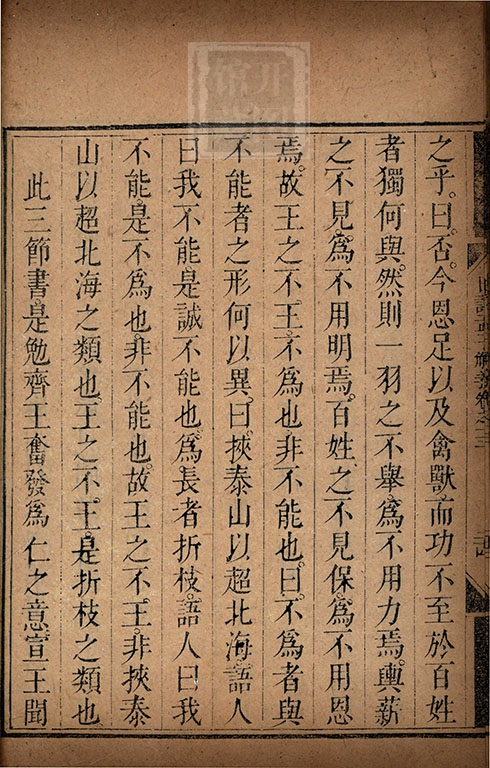 之乎。曰。否。今恩足以及禽獸。而功不至於百姓
者獨何與。然則一羽之不舉。爲不用力焉。輿薪
之不見。爲不用明焉。百姓之不見保。爲不用恩
焉。故王之不王。不爲也。非不能也。曰。不爲者與
不能者之形何以異。曰。挾泰山以超北海。語人
曰我不能。是誠不能也。爲長者折枝。語人曰我
不能。是不爲也。非不能也。故王之不王。非挾泰
山以超北海之類也。王之不王。是折枝之類也
此三節書。是勉齊王奮發爲仁之意。宣王聞